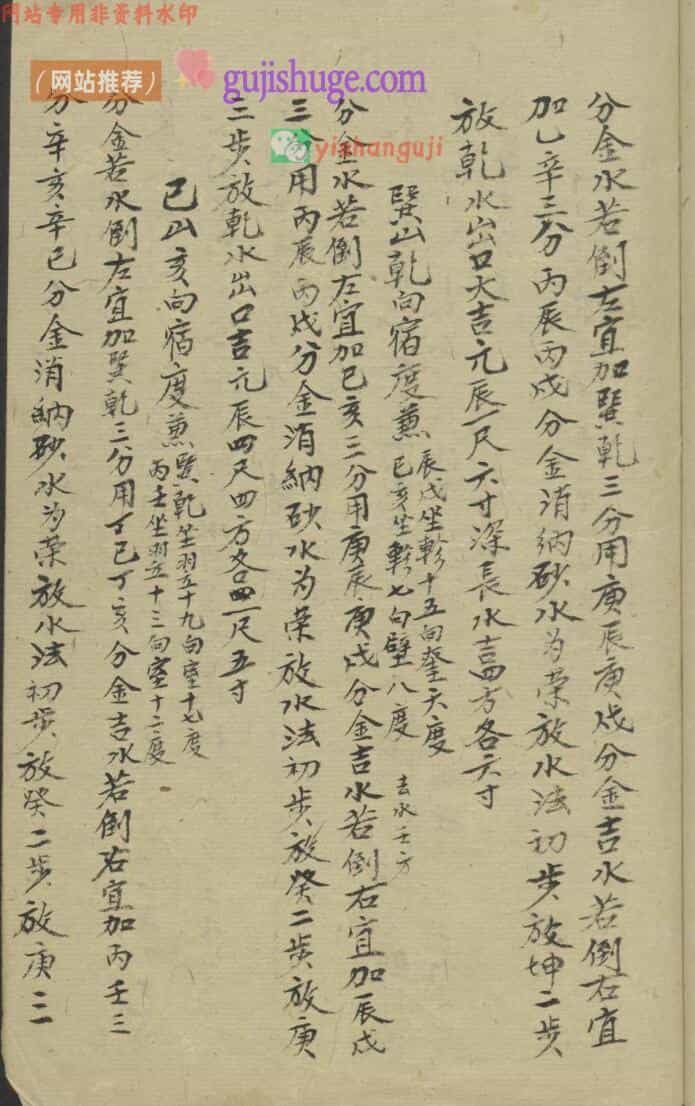 网站专用非资料水印
（网站推荐）
gujishuge.com
yishanguji
分金水若倒左宜加巽乾三分用庚辰庚戌分金吉水若倒右宜
加乙辛三分丙辰丙戌分金消納砂水为荣放水法初步放坤二步
放乾水出口大吉元辰一尺六寸深長水吉四方各六寸
巽山乾向宿度兼辰戌坐軫十五向奎六度
巳亥坐軫七向壁八度
去水壬方
分金水若倒左宜加巳亥三分用庚辰庚戌分金吉水若倒右宜加辰戌
三分用丙辰丙戌分金消納砂水为荣放水法初步放癸二步放庚
三步放乾水出口吉元辰四尺四方各四一尺五寸
巳山亥向宿度兼巽乾坐翌五十九向室十七度
丙壬坐翌五十三向室十二度
分金若水倒左宜加巽乾三分用丁巳丁亥分金吉水若倒右宜加丙壬三
分辛亥辛巳分金消納砂水为荣放水法初步放癸二步放庚三